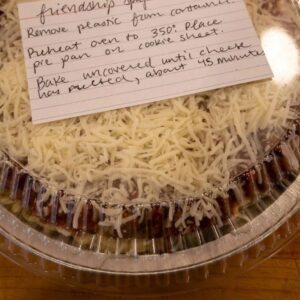 friendship
Remove plastic from
Preheat oven to 350°. Place
pie pan on cookie sheet.
Bake uncovered until cheese
has melted, about 45 minutes